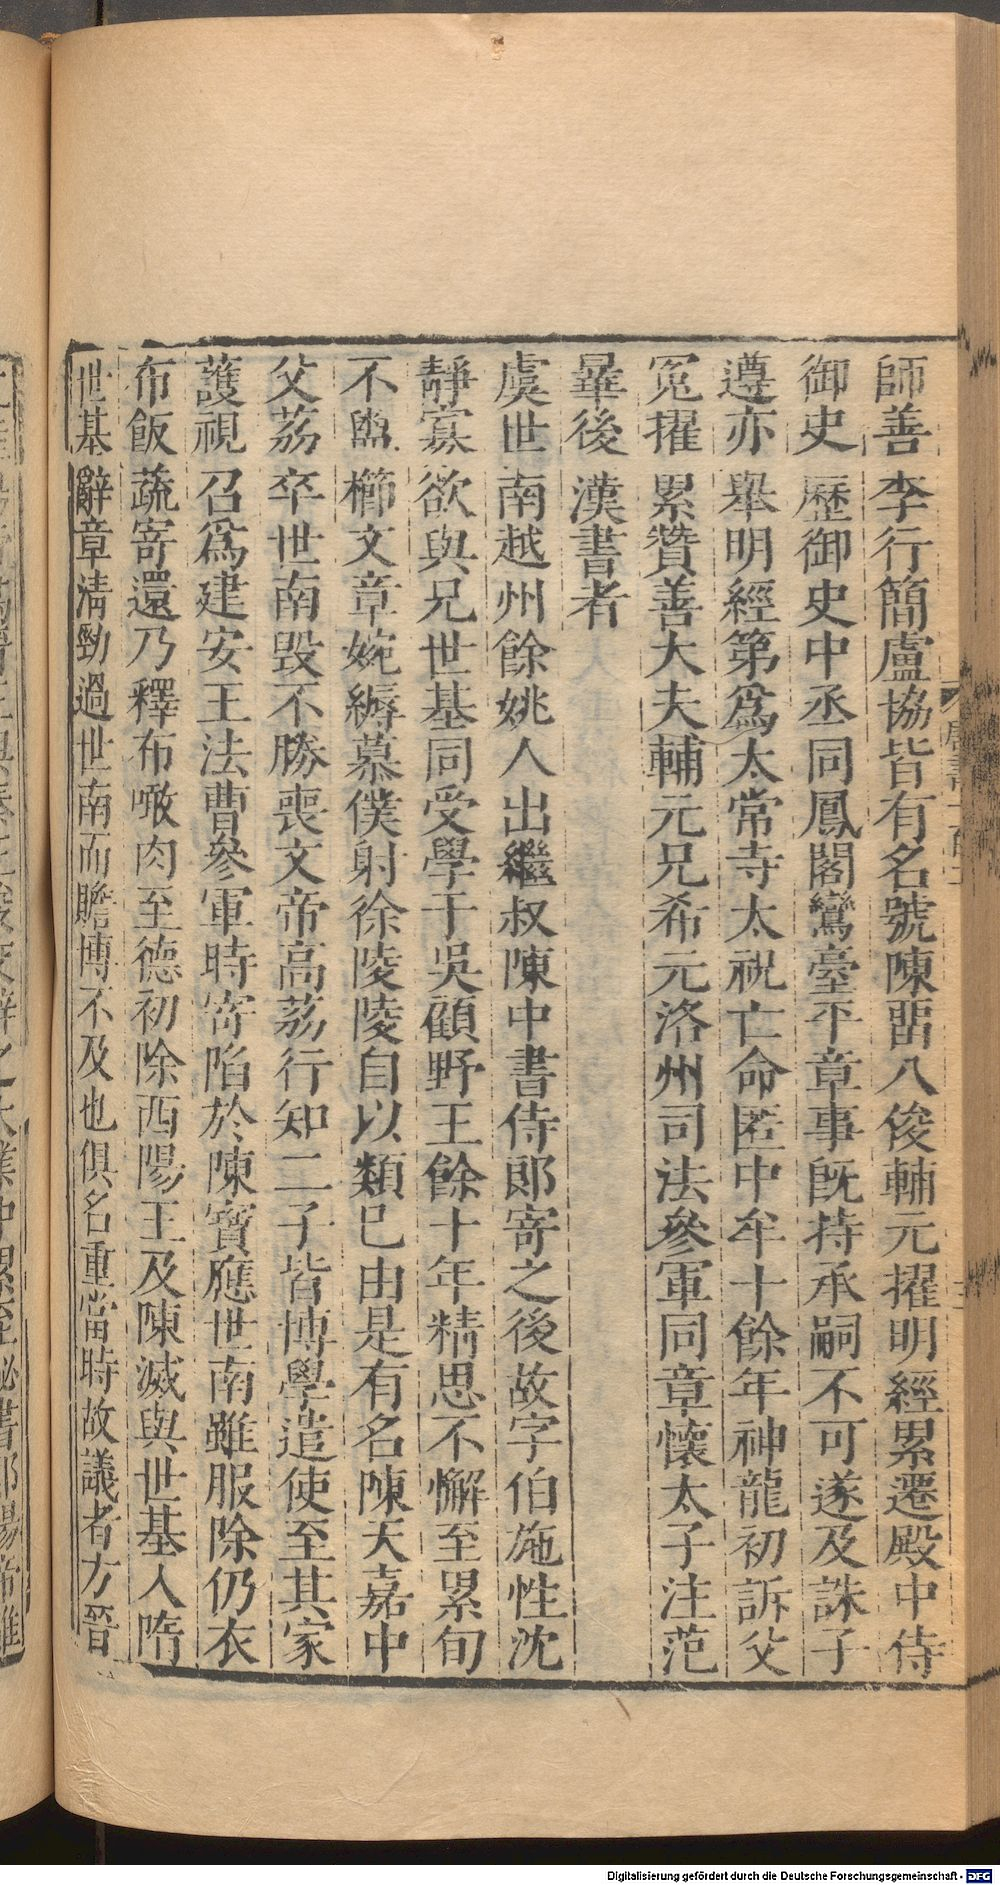 師善李行簡盧協皆有名號陳留八俊輔元擢明經累遷殿中侍
御史歷御史中丞同鳳閣鸞臺平章事既持承嗣不可遂及誅子
遵亦舉明經第爲太常寺太祝亡命匿中牟十餘年神龍初訴父
冤擢累贊善大夫輔元兄希元洛州司法參軍同章懷太子注范
曄後漢書者
虞世南越州餘姚人出繼叔陳中書侍郎寄之後故字伯施性沈
靜寡欲與兄世基同受學于吳顧野王餘十年精思不懈至累旬
不盥櫛文章婉縟慕僕射徐陵陵自以類已由是有名陳天嘉中
父荔卒世南毀不勝喪文帝高荔行知二子皆博學遣使至其家
護視召爲建安王法曹參軍時寄陷於陳寶應世南雖服除仍衣
布飯蔬寄還乃釋布噉肉至德初除西陽王及陳滅與世基入隋
世基辭章清勁過世南而贍博不及也俱名重當時故議者方晉
Digitalisierung gefördert durch die Deutsche Forschungsgemeinschaft - DFG